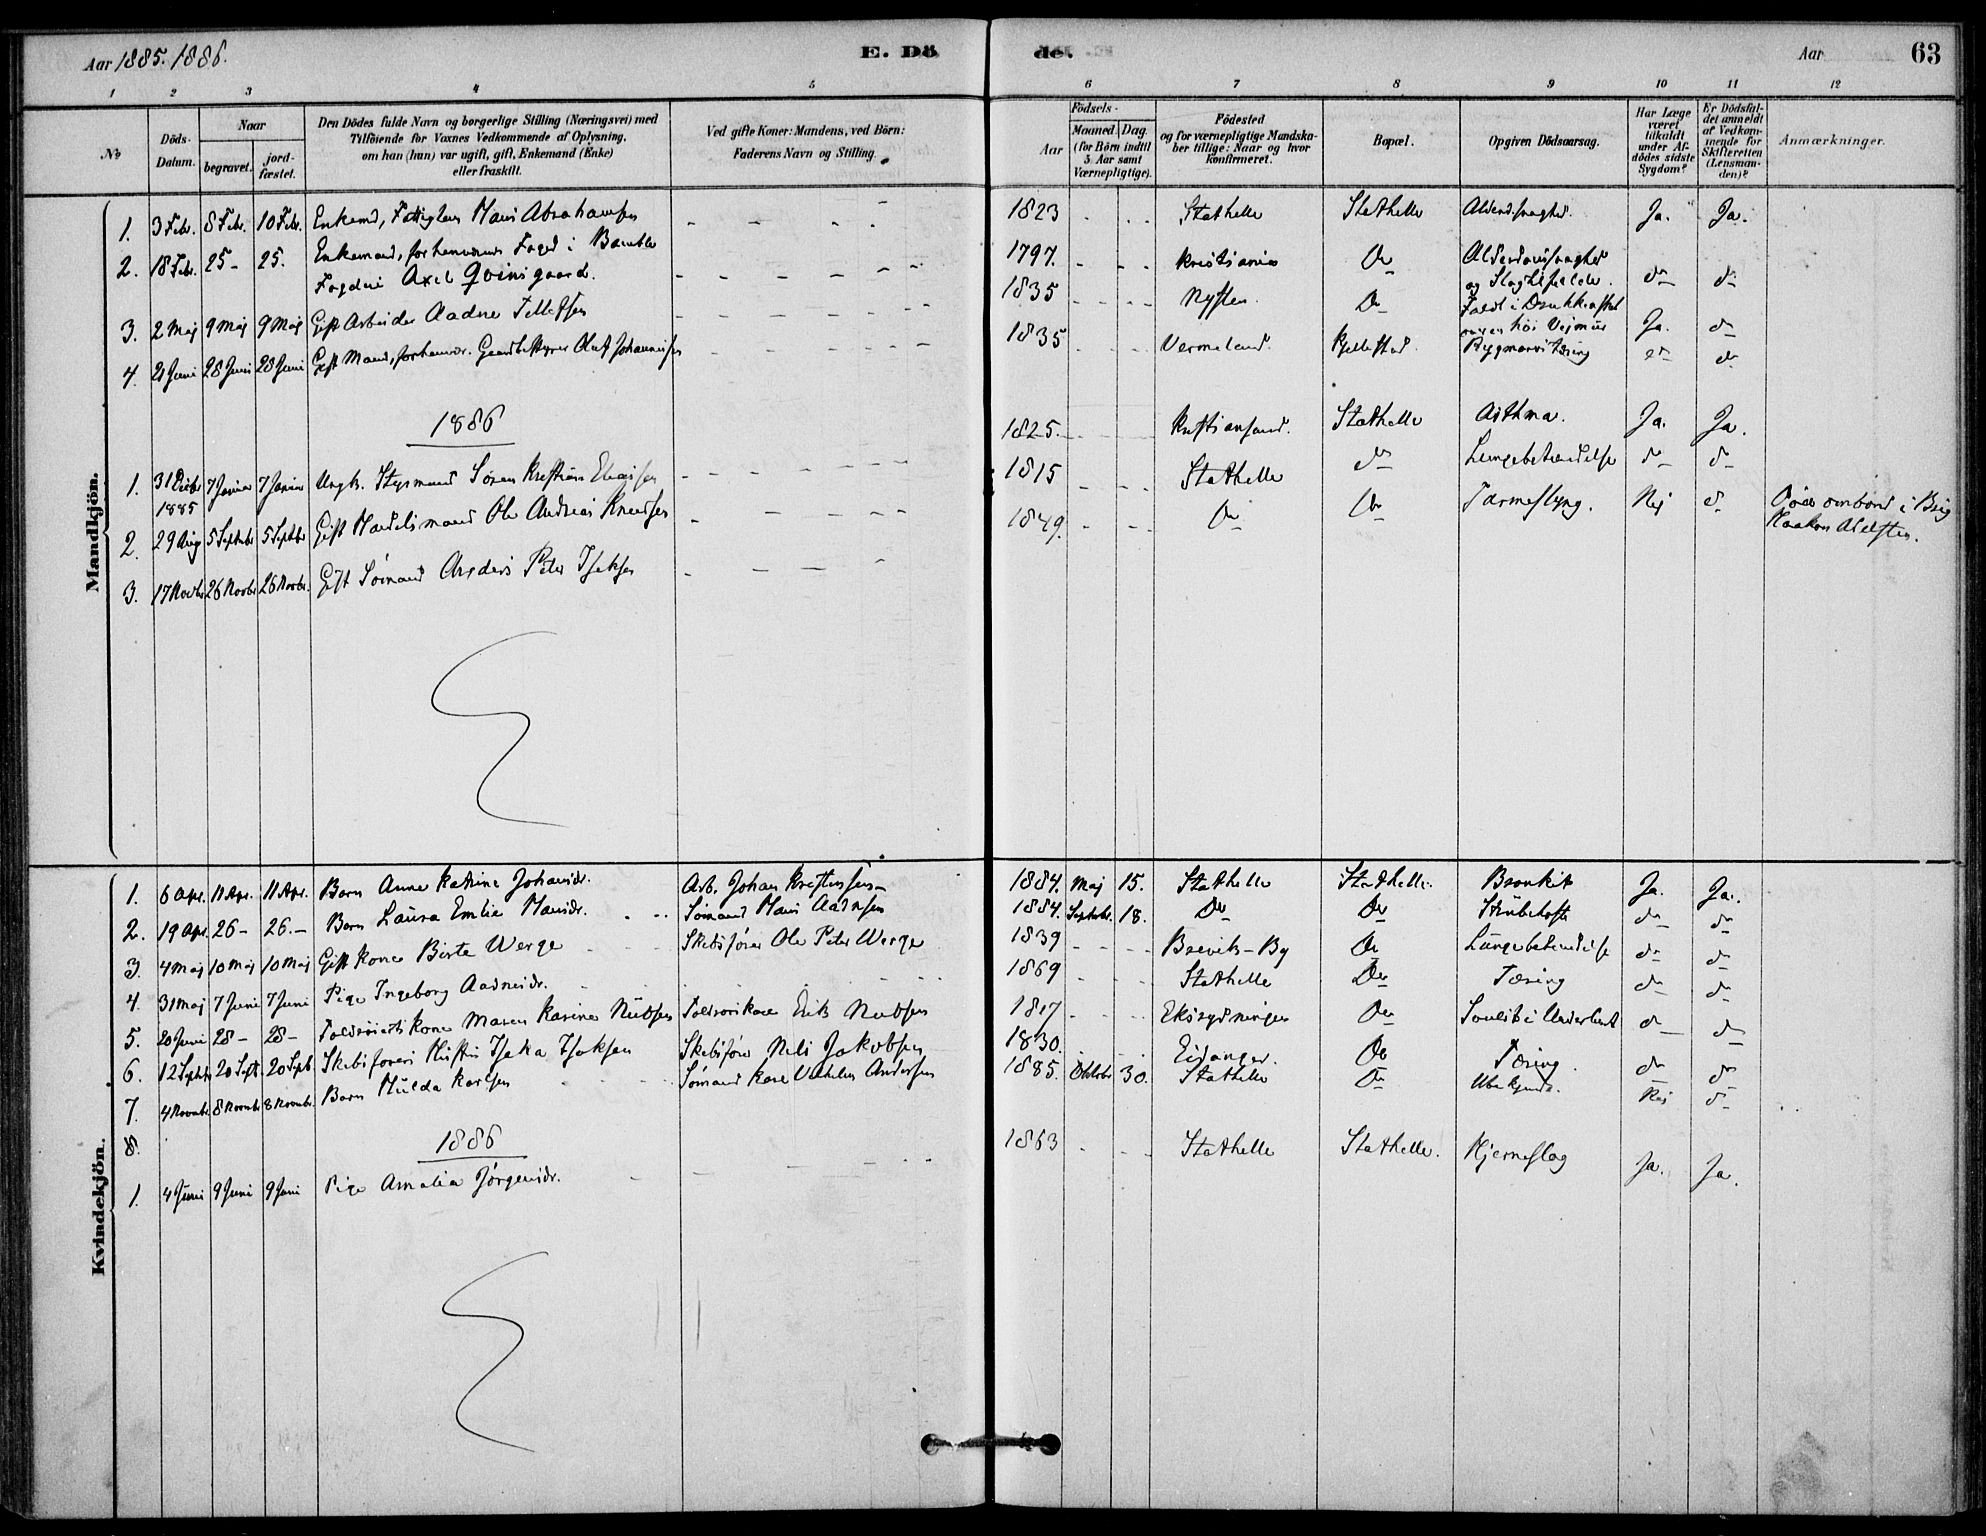 Aar 1885. 1886.
E. Dö
de.
Aar
63
1 2 3 4 5 6 7 8 9 10 11 12
No
Döds-
Datum.
Naar
begravet.
jord-
fæstet.
Den Dödes fulde Navn og borgerlige Stilling (Næringsvei) med
Tilföiende for Voxnes Vedkommende af Oplysning,
om han (hun) var ugift, gift, Enkemand (Enke)
eller fraskilt.
Ved gifte Koner: Mandens, ved Börn:
Faderens Navn og Stilling.
Födsels-
Aar
Maaned. Dag.
(for Börn indtil
5 Aar samt
Værnepligtige).
Födested
og for værnepligtige Mandska-
ber tillige: Naar og hvor
konfirmeret.
Bopæl.
Opgiven Dödsaarsag.
Har Læge
været
tilkaldt
under Af-
dödes sidste
Sygdom?
Er Dödsfal-
det anmeldt
af Vedkom-
mende for
Skifteretten
(Lensman-
den)?
Anmærkninger.
Mandkjön.
1. 3 Febr. 8 Febr. 10 Febr. Enkemd, Fattiglem Hans Abrahamsen 1823 Stathelle Stathelle Alderdsvaghed. Ja. Ja.
2. 18 Febr. 25- 25. Enkemand, forhenværende Foged i Bamble 1797. Kristiania Do Alderdomssvaghed
Fogderi Axel Qvinsgaard. og Slagtilfælde. do do
3. 2 Maj 9 Maj 9 Maj Gift Arbeider Aadne Tellefsen 1835 Do Ja. do
4. 21 Juni 28 Juni 28 Juni Gift Mand, forhenv. Olaf Johannesen 1835 Vermeland. Kjellestad. Rygmarvstæring do do
1886
1. 31 Decbr 1885 7 Januar 7 Januar Ungk. Styrmand Søren Kristian Eliassen 1825. Kristiansand. Stathelle Asthma. Ja. Ja.
2. 29 Aug 5 Septbr 5 Septbr Gift Handelsmand Ole Andreas Knudsen 1815 Stathelle do Lungebetændelse do do
3. 17 Novbr 26 Novbr 26 Novbr. Gift Sømand Anders Peter Isaksen 1849. Do Do Tarmeslyng. Nej do Døde ombord i Brig
Haakon Adelsten.
Kvindekjön.
1. 6 Apr. 11 Apr. 11 Apr. Barn Anne Katrine Johansdr. Arb. Johan Kristensen 1884. Maj 15. Stathelle Stathelle. Bronkit Ja. Ja.
2. 19 Apr. 26- 26.- Barn Laura Emilie Hansdr. Sømand Hans Aadnesen 1884. Septbr. 18. Do Do Strubehoste do do
3. 4 Maj 10 Maj 10 Maj Gift Kone Birte Werge Skibsfører Ole Peter Werge 1839 Brevik-By Do Lungebetændelse do do
4. 31 Maj 7 Juni 7 Juni Pige Ingeborg Aadnesdr. 1869 Stathelle Do Tæring do do
5. 20 Juni 28- 28- Kone Maren Karine Nubsen Erik Nubsen 1817 Do do do
6. 12 Septbr 20 Septr 20 Septb. Skibsførers Isaka Isaksen Skibsfører Nils Jakobsen 1830. Eidanger. Do Tæring. do do
7. 4 Novembr 8 Novembr 8 Novembr. Barn Hulda Karlsen Sømand Karl Vilhelm Andersen 1885. Oktobr 30. Stathelle Do Ubekjendt. Nej do
8.
1886
1. 4 Juni 9 Juni 9 Juni Pige Amalia Jørgensdr. 1863 Stathelle Stathelle. Hjerneslag Ja. Ja.